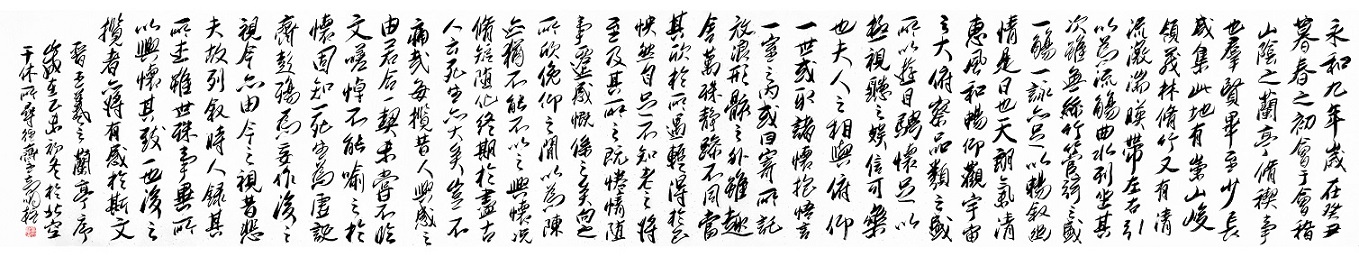 永和九年歲在癸丑
暮春之初會于會稽
山陰之蘭亭脩禊事
也羣賢畢至少長
咸集此地有崇山峻
領茂林脩竹又有清
流激湍暎帶左右引
以為流觴曲水列坐其
次雖無絲竹管弦之盛
一觴一詠亦足以暢敘幽
情是日也天朗氣清
惠風和暢仰觀宇宙
之大俯察品類之盛
所以遊目騁懷足以
極視聽之娛信可樂
也夫人之相與俯仰
一世或取諸懷抱悟言
一室之內或因寄所託
放浪形骸之外雖趣
舍萬殊靜躁不同當
其欣於所遇輒得於己
怏然自足不知老之將
至及其所之既惓情隨
事遷感慨係之矣向之
所欣俛仰之間以為陳
迹猶不能不以之興懷況
脩短隨化終期於盡古
人云死生亦大矣豈不
痛哉每攬昔人興感之
由若合一契未嘗不臨
文嗟悼不能喻之於
懷固知一死生為虛誕
齊彭殤為妄作後之
視今亦由今之視昔悲
夫故列敘時人錄其
所述雖世殊事異所
以興懷其致一也後之
攬者亦將有感於斯文
晉王羲之蘭亭序
歲在乙未初冬於北空
干休所